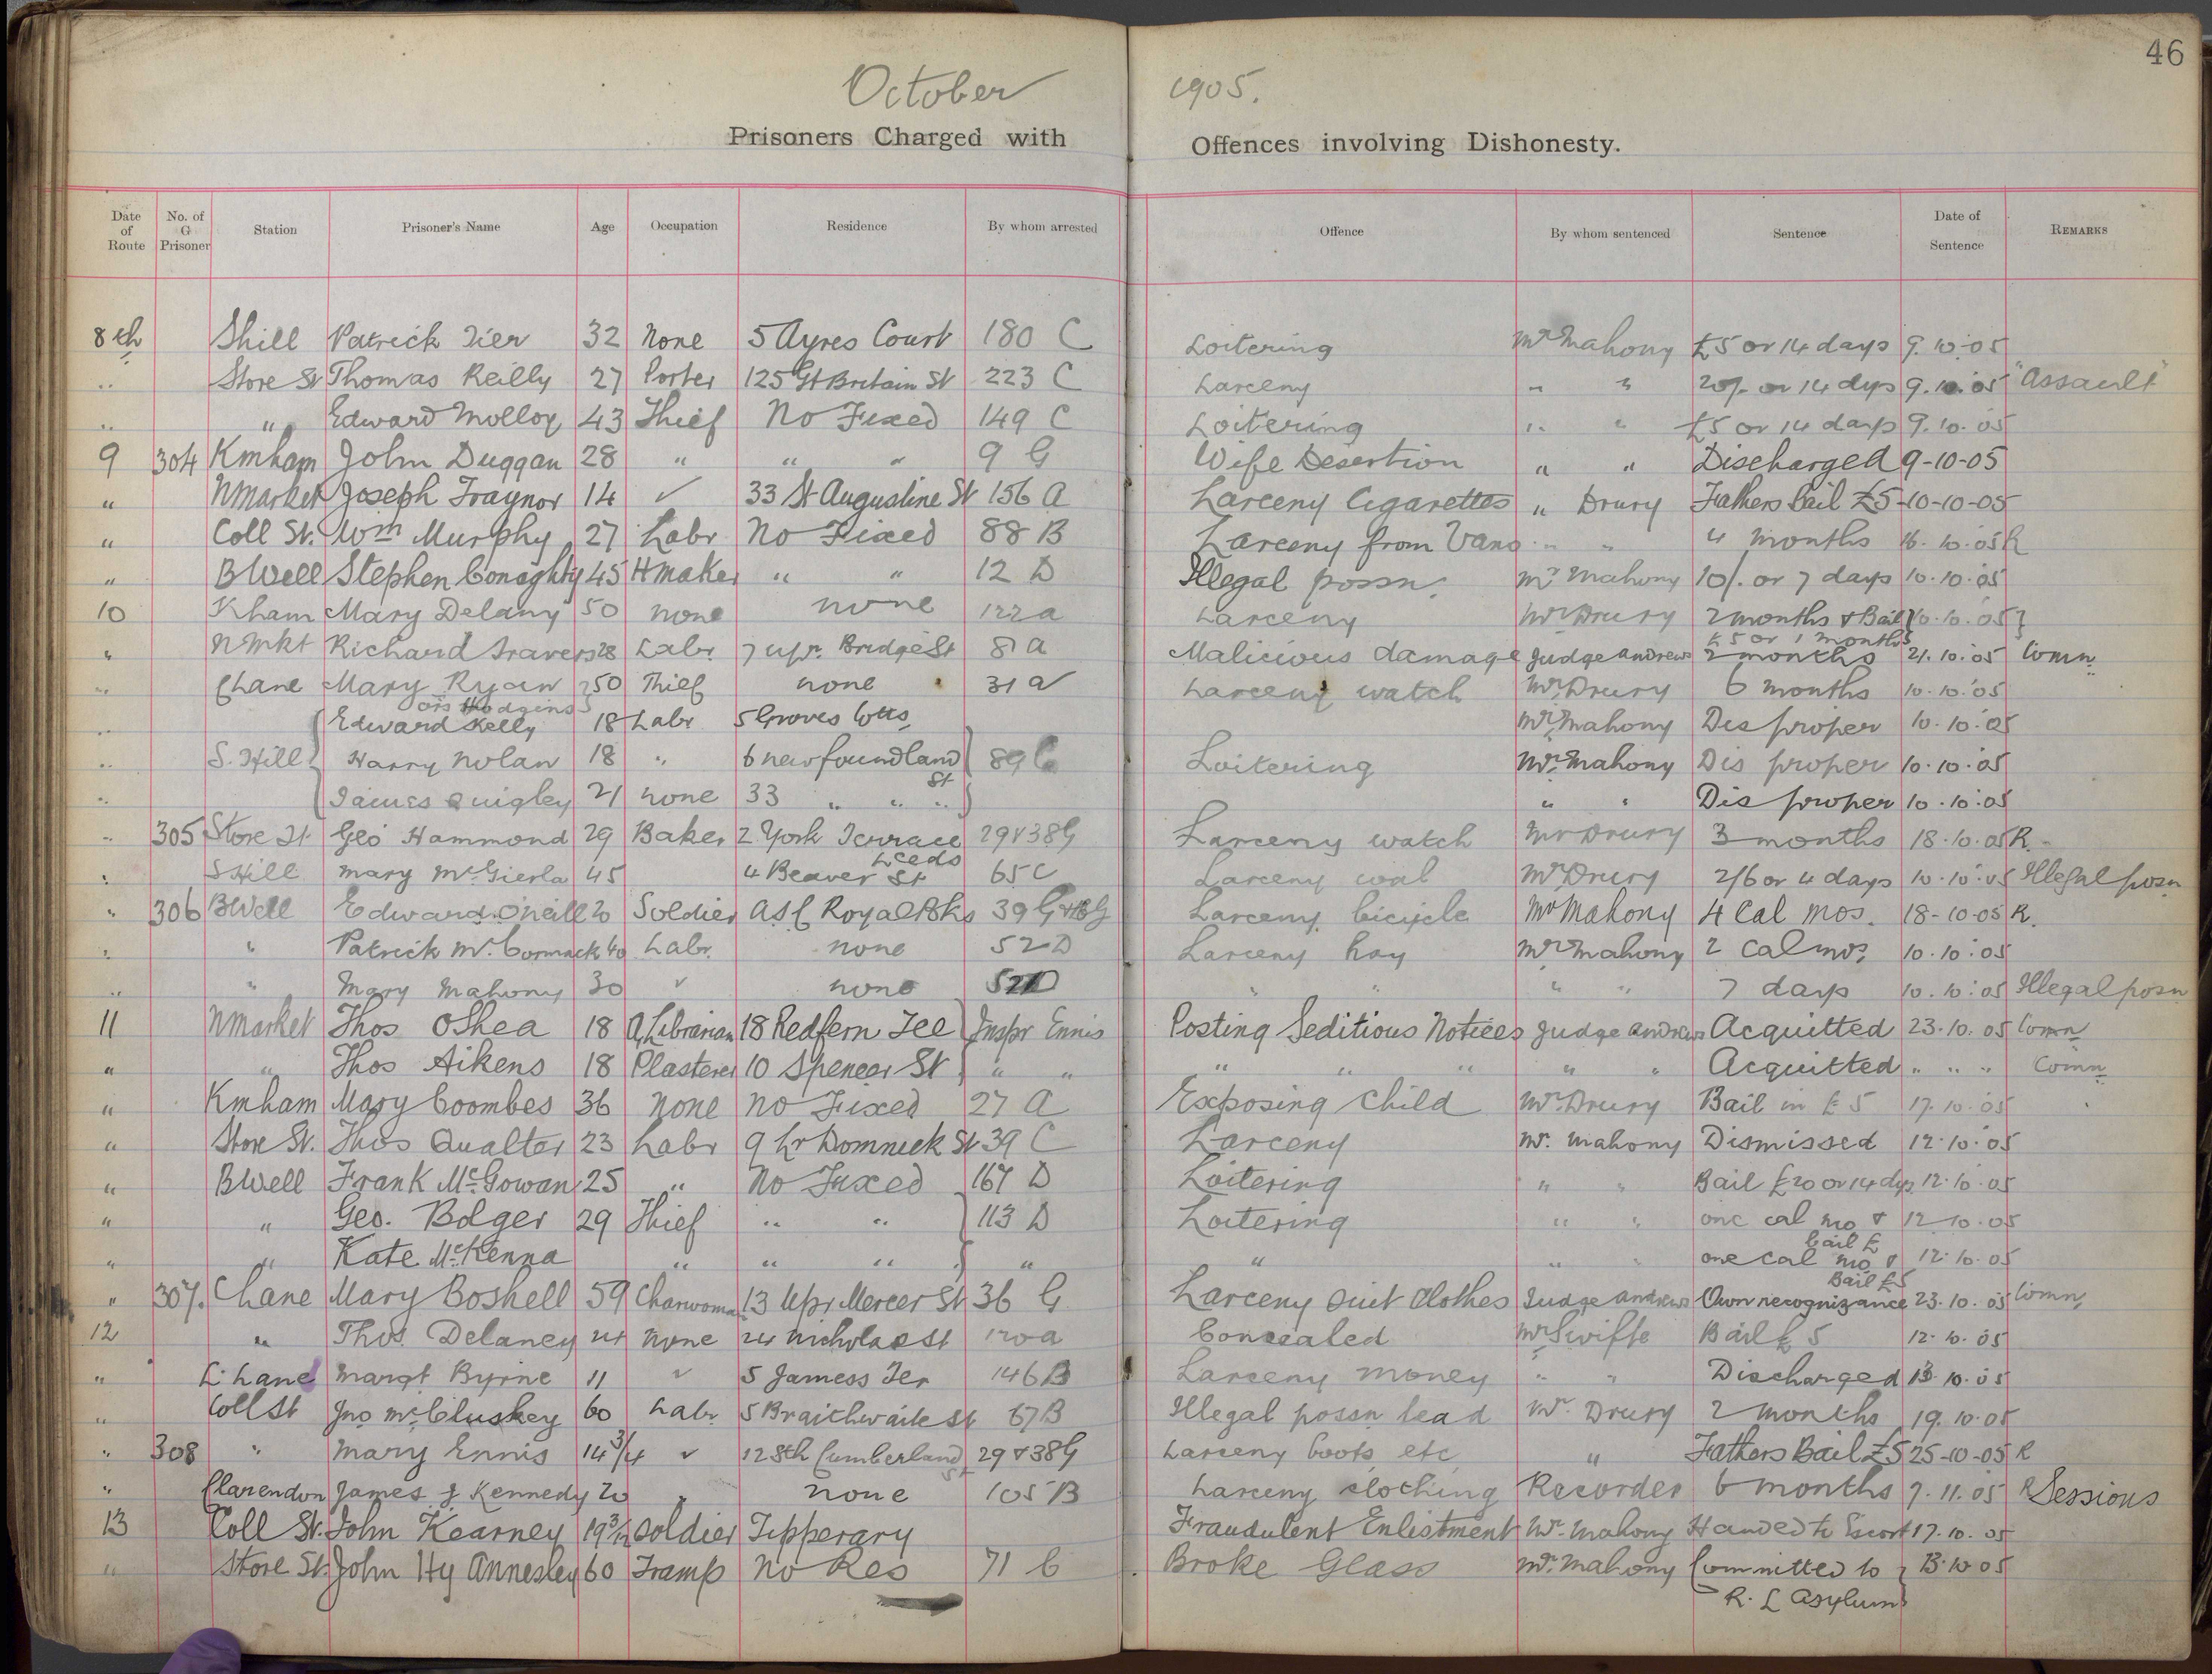 46
October 1905.
Prisoners Charged with Offences involving Dishonesty.
Date of Route No. of G Prisoner Station Prisoner's Name Age Occupation Residence By whom arrested Offence By whom sentenced Sentence Date of Sentence Remarks
8th Shill Patrick Tier 32 None 5 Ayres Court 180 C Loitering Mr Mahony £5 or 14 days 9.10.05
" Store St Thomas Reilly 27 Porter 125 Gt Britain St 223 C Larceny " " 20/- or 14 dys 9.10.05 "Assault"
" " Edward Molloy 43 Thief No Fixed 149 C Loitering " " £5 or 14 days 9.10.05
9 304 Kmham John Duggan 28 " " " 9 G Wife Desertion " " Discharged 9-10-05
" Nmarket Joseph Traynor 14 ✓ 33 St Augustine St 156 A Larceny Cigarettes " Drury Fathers bail £5 -10-10-05
" Coll St. Wm Murphy 27 Labr No Fixed 88 B Larceny from Vans " " 4 months 16.10.05 R
" BWell Stephen Conaghty 45 Hmaker " " 12 D Illegal possn. Mr Mahony 10/. or 7 days 10.10.05
10 Kham Mary Delany 50 none none 122 a Larceny Mr Drury 2 months & Bail 10.10.05
£5 or 1 months
" Nmkt Richard Travers 28 Labr. 7 upr. Bridge St 81 a Malicious damage Judge Andrews 2 months 21.10.05 Comn
" Chane Mary Ryan 50 Thief none 31 a Larceny watch Mr Drury 6 months 10.10.05
ors Hodgins
" Edward Kelly 18 Labr 5 Groves Cotts Mr Mahony Dis proper 10.10.05
" S. Hill Harry Nolan 18 " 6 newfoundland St 89 C Loitering Mr. Mahony Dis proper 10.10.05
" James Quigley 21 none 33 " " " " " Dis proper 10.10.05
" 305 Store St Geo Hammond 29 Baker 2 York Terrace Leeds 29 & 38 G Larceny watch Mr Drury 3 months 18.10.05 R.
" S Hill Mary McGierla 45 4 Beaver St 65 C Larceny coal Mr Drury 2/6 or 4 days 10.10.05 Illegal posn
" 306 BWell Edward O'Neill 20 Soldier ASC Royal Bks 39 G & 16 G Larceny bicycle Mr Mahony 4 Cal mos. 18-10-05 R.
" " Patrick McCormack 40 Labr. none 52 D Larceny hay Mr Mahony 2 Cal mos. 10.10.05
" " Mary Mahony 30 ✓ none 52 D " " " " 7 days 10.10.05 Illegal posn
11 Nmarket Thos OShea 18 A. Librarian 18 Redfern Tce Inspr Ennis Posting Seditious Notices Judge Andrews Acquitted 23.10.05 Comn
" " Thos Aikens 18 Plasterer 10 Spencer St " " " " " " " Acquitted " " " Comn
" Kmham Mary Coombes 36 none no Fixed 27 A Exposing Child Mr. Drury Bail in £5 17.10.05
" Store St. Thos Qualter 23 Labr 9 Lr Domnick St 39 C Larceny Mr. Mahony Dismissed 12.10.05
" BWell Frank McGowan 25 " No Fixed 167 D Loitering " " Bail £20 or 14 dys 12.10.05
" " Geo. Bolger 29 Thief " " 113 D Loitering " " one cal mo & bail £ 12.10.05
" " Kate McKenna " " " " " " " one cal mo & Bail £5 12.10.05
" 307. Chane Mary Boshell 59 Charwoman 13 Upr Mercer St 36 G Larceny suit clothes Judge Andrews Own recognizance 23.10.05 Comn
12 " Thos. Delaney 24 none 24 Nicholas St 120 a Concealed Mr Swifte Bail £5 12.10.05
" L. Lane Margt Byrne 11 ✓ 5 Jamess Ter 146 B Larceny money " " Discharged 13.10.05
" Coll St Jno McCluskey 60 Labr. 5 Braithwaite St 67 B Illegal possn lead Mr. Drury 2 months 19.10.05
" 308 " Mary Ennis 14 3/4 ✓ 12 Sth Cumberland St 29 & 38 G Larceny boots etc " Fathers Bail £5 25-10-05 R
" Clarendon James J Kennedy 20 " none 105 B Larceny clothing Recorder 6 months 7.11.05 R Sessions
13 Coll St. John Kearney 19 3/12 Soldier Tipperary Fraudulent Enlistment Mr. Mahony Handed to Escort 17.10.05
" Store St. John Hy Annesley 60 Tramp No Res 71 C Broke Glass Mr. Mahony Committed to 13.10.05
R. L Asylum